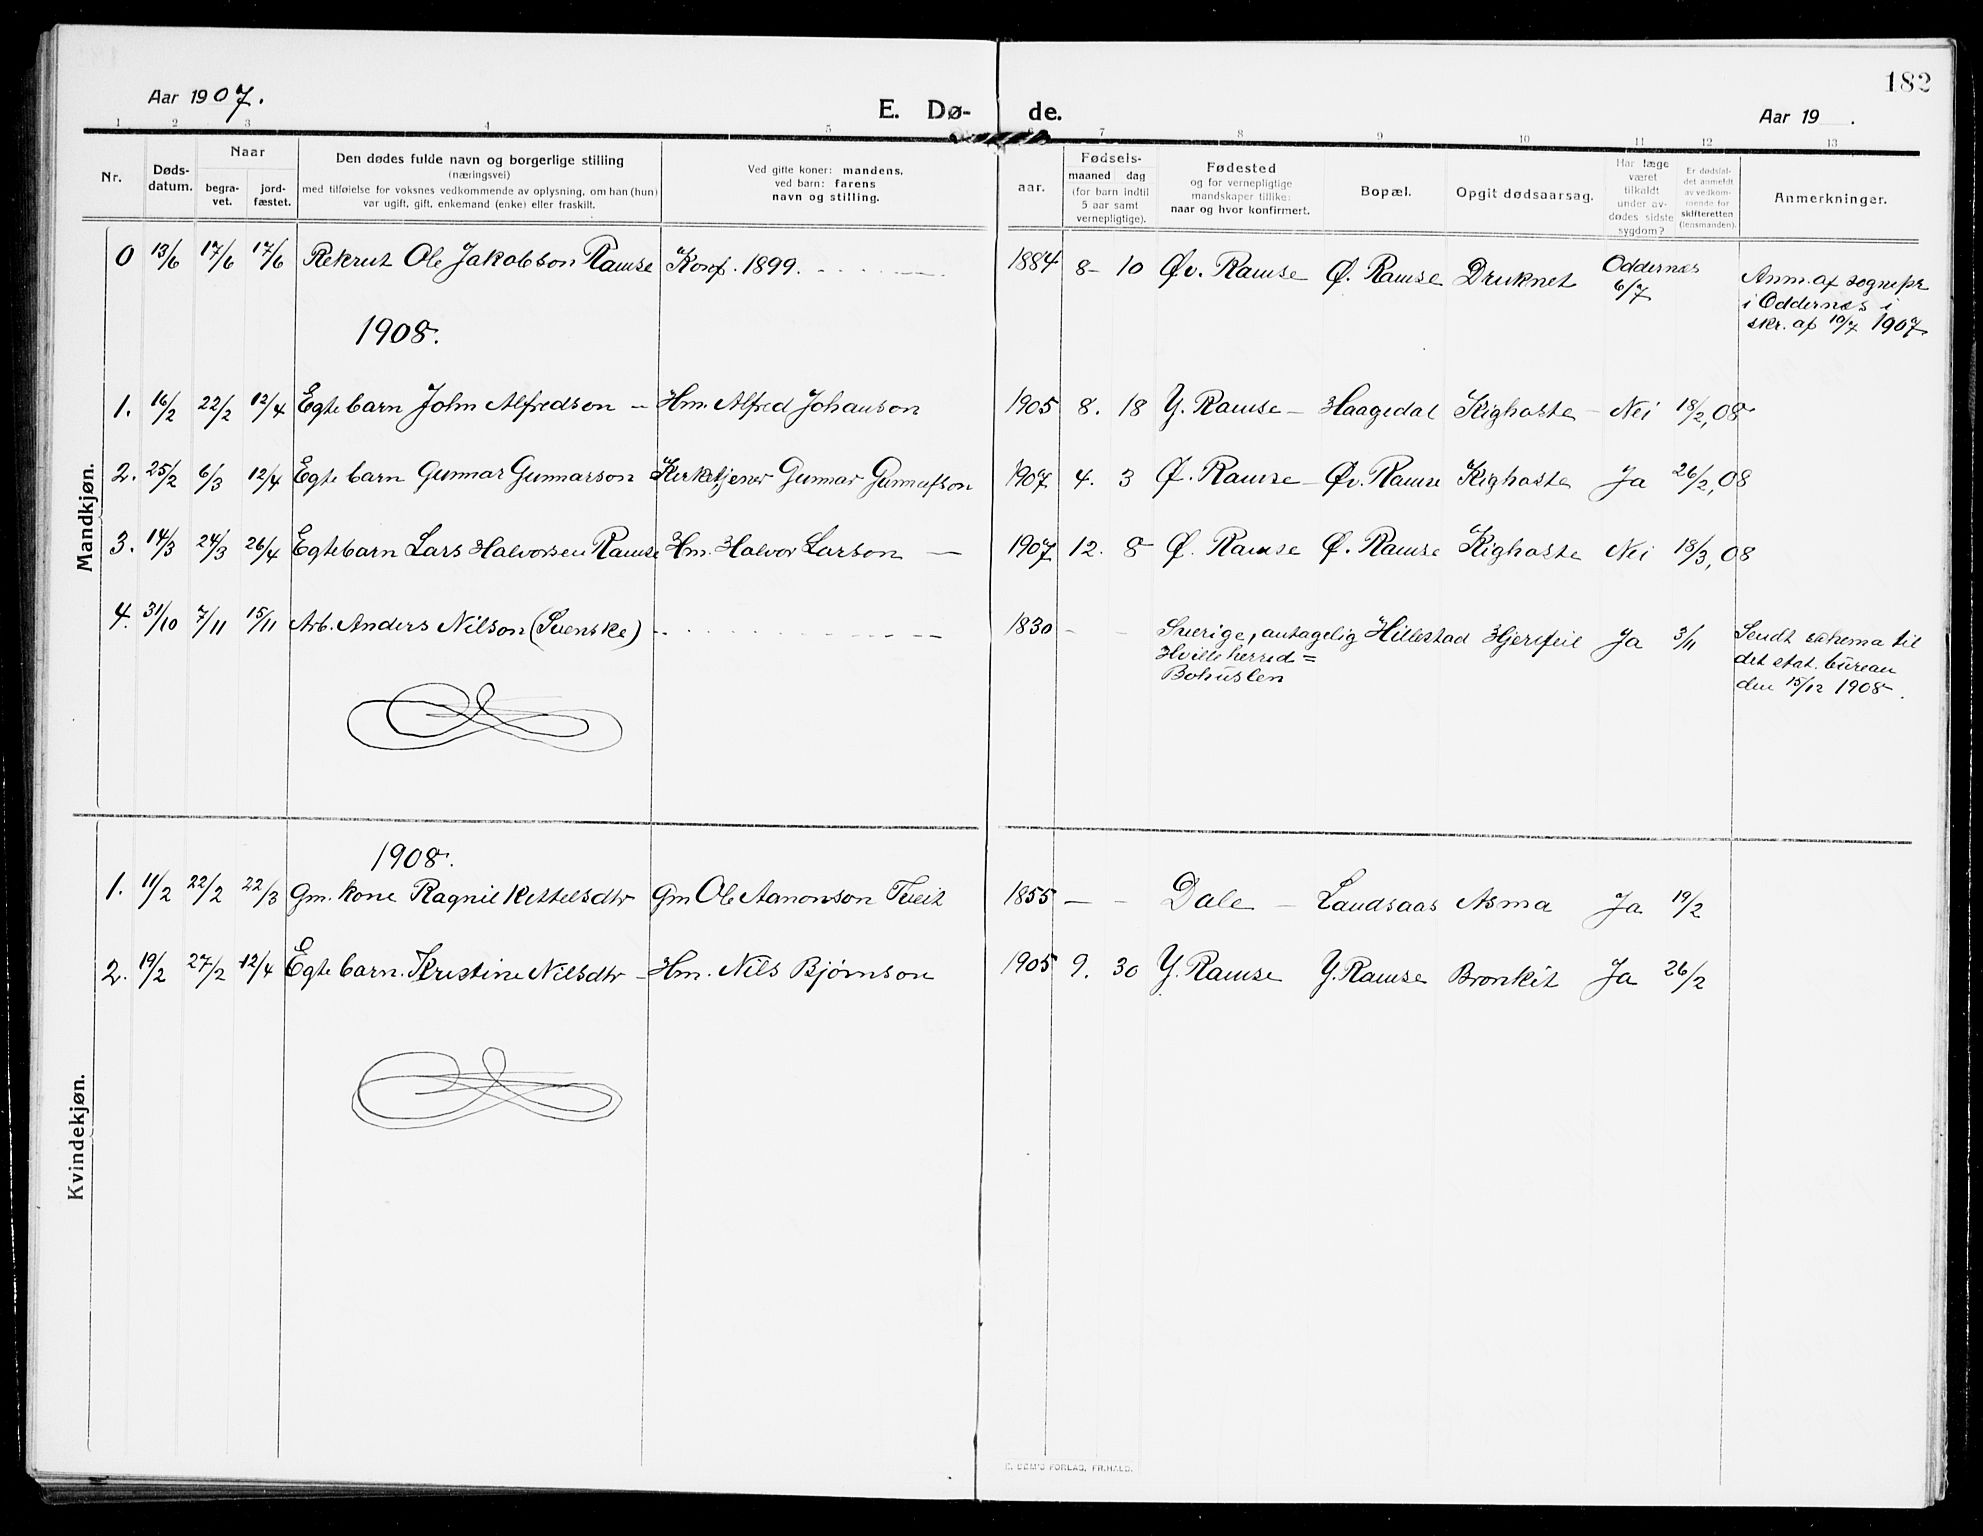 182
Aar 1907.
E. Dø- de.
Aar 19 .
1 2 3 4 5 6 7 8 9 10 11 12 13
Nr.
Døds-
datum.
Naar
begra-
vet.
jord-
fæstet.
Den dødes fulde navn og borgerlige stilling
(næringsvei)
med tilføielse for voksnes vedkommende av oplysning, om han (hun)
var ugift, gift, enkemand (enke) eller fraskilt.
Ved gifte koner: mandens.
ved barn: farens
navn og stilling.
aar.
Fødsels-
maaned dag
(for barn indtil
5 aar samt
vernepligtige).
Fødested
og for vernepligtige
mandskaper tillike:
naar og hvor konfirmert.
Bopæl.
Opgit dødsaarsag.
Har læge
været
tilkaldt
under av-
dødes sidste
sygdom?
Er dødsfal-
det anmeldt
av vedkom-
mende for
skifteretten
(lensmanden).
Anmerkninger.
Mandkjøn.
0 13/6 17/6 17/6 Rekrut Ole Jakobson Ramse Konf. 1899. 1884 8 - 10 Øv. Ramse Ø. Ramse Druknet Oddernæs 6/7 Anm. af sognepr
i Oddernæs i
skr. af 10/7 1907
1908.
1. 16/2 22/2 12/4 Egte barn John Alfredson - Hm. Alfred Johanson 1905 8. 18 Y. Ramse - Haagedal Kighoste - Nei 18/2, 08
2. 25/2 6/3 12/4 Egte barn Gunnar Gunnarson Kirketjener Gunnar Gunnarson 1907 4. 3 Ø. Ramse - Øv. Ramse Kighoste Ja 26/2, 08
3. 14/3 24/3 26/4 Egte barn Lars Halvorsen Ramse Hm. Halvor Larson - 1907 12. 8 Ø. Ramse Ø. Ramse Kighoste Nei 18/3, 08
4. 31/10 7/11 15/11 Arb. Anders Nilson (Svenske) 1830 - - Sverige, antagelig Hillestad Hjertfeil Ja 3/11 Sendt schema til
Hville herred =
Bohuslen
det stat. büreau
den 15/12 1908.
Kvindekjøn.
1908.
1. 11/2 22/2 22/3 Gm. kone Ragnil Kettelsdtr Gm Ole Aanonson Tveit 1855 - - Dale - Landsaas Asma Ja 19/2
2. 19/2 27/2 12/4 Egte barn. Kristine Nilsdtr - Hm. Nils Bjørnson 1905 9. 30 Y. Ramse Y. Ramse Bronkit Ja 26/2
E. SEM'S FORLAG, FR.HALD.